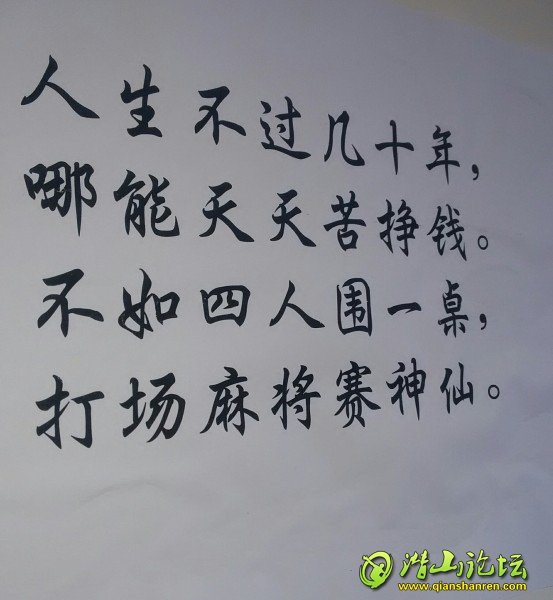 人生不过几十年，
哪能天天苦挣钱。
不如四人围一桌，
打场麻将赛神仙。
潜山论坛
www.qianshanren.com